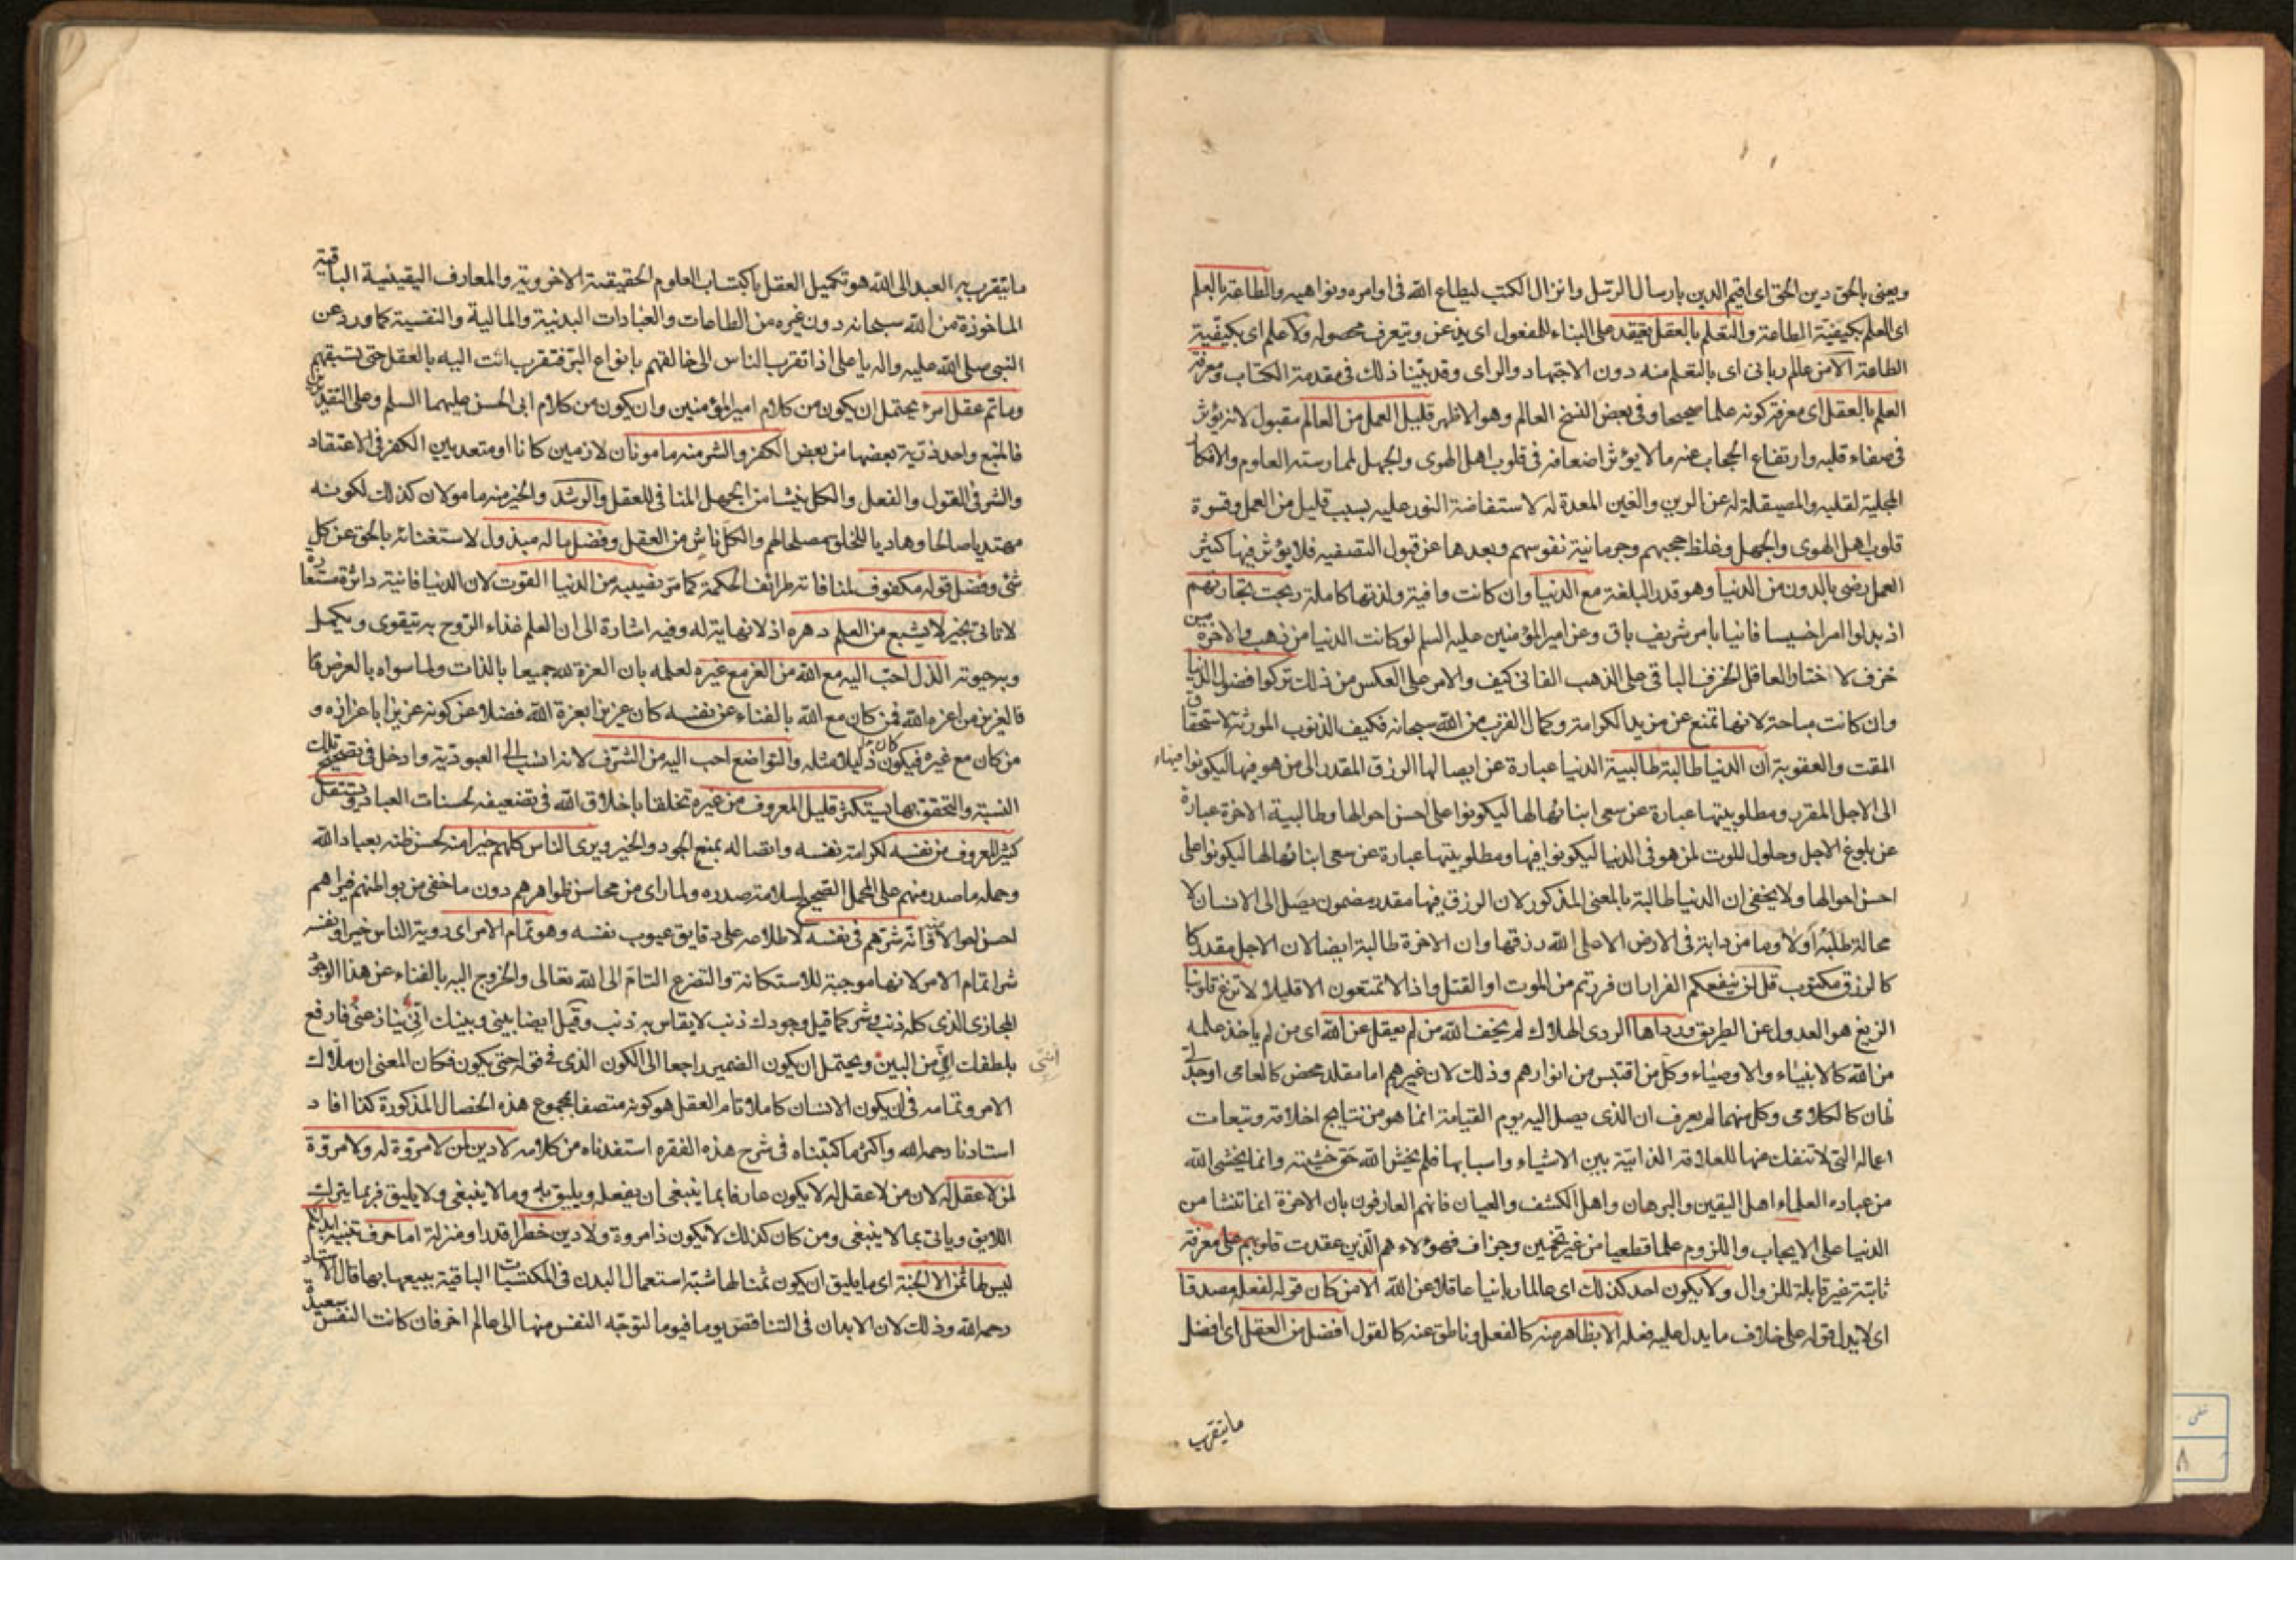 ويعنى بالحق دين الحق اى اقيم الدين بارسال الرسل وانزال الكتب ليطاع الله فى اوامره ونواهيه والطاعة بالعلم
اى العلم بكيفية الطاعة والتعلم بالعقل يعتقد على البناء للمفعول اى يذعن ويتعرف محصوله ولا علم اى بكيفية
الطاعة الا من عالم ربانى اى بالتعلم منه دون الاجتهاد والراى وقد بينا ذلك فى مقدمة الكتاب ومعرفة
العلم بالعقل اى معرفة كونه علما صحيحا وفى بعض النسخ العالم وهو الاظهر قليل العمل من العالم مقبول لانه يؤثر
فى صفاء قلبه وارتفاع الحجاب عنه ما لا يؤثر اضعافه فى قلوب اهل الهوى والجهل لممارسته العلوم والافكار
المجلية لقلبه والمصيقلة له عن الرين والغين المعدة له لاستفاضة النور عليه بسبب قليل من العمل وقسوة
قلوب اهل الهوى والجهل وغلظ حجبهم وجرمانية نفوسهم وبعدها عن قبول التصفيه فلا يؤثر فيها كثير
العمل رضى بالدون من الدنيا وهو قدر البلغة مع الدنيا وان كانت وافية ولذتها كاملة ربحت تجارتهم
اذ بدلوا امرا خسيسا فانيا بامر شريف باق وعن امير المؤمنين عليه السلم لو كانت الدنيا من ذهب والاخرة من
خزف لاختار العاقل الخزف الباقى على الذهب الفانى كيف والامر على العكس من ذلك تركوا فضول الدنيا
وان كانت مباحة لانها تمنع عن مزيد الكرامة وكمال القرب من الله سبحانه فكيف الذنوب المورثة لاستحقاق
المقت والعقوبة ان الدنيا طالبة طالبية الدنيا عبارة عن ايصالها الرزق المقدر الى من هو فيها ليكونوا فيها
الى الاجل المقرر ومطلوبيتها عبارة عن سعى ابنائها لها ليكونوا على احسن احوالها وطالبية الاخرة عبارة
عن بلوغ الاجل وحلول الموت لمن هو فى الدنيا ليكونوا فيها ومطلوبيتها عبارة عن سعى ابنائها لها ليكونوا على
احسن احوالها ولا يخفى ان الدنيا طالبة بالمعنى المذكور لان الرزق فيها مقدر مضمون يصل الى الانسان لا
محالة طلبه او لا وما من دابة فى الارض الا على الله رزقها وان الاخرة طالبة ايضا لان الاجل مقدر كا
كالرزق مكتوب قل لن ينفعكم الفرار ان فررتم من الموت او القتل واذا لا تمتعون الا قليلا لا تزغ قلوبنا
الزيغ هو العدول عن الطريق ورداها الردى الهلاك لم يخف الله من لم يعقل عن الله اى من لم ياخذ علمه
من الله كالانبياء والاوصياء وكل من اقتبس من انوارهم وذلك لان غيرهم اما مقلد محض كالعامى او جدلى
ظان كالكلامى وكل منهما لم يعرف ان الذى يصل اليه يوم القيامة انما هو من نتايج اخلاقه وتبعات
اعماله التى لا تنفك عنها للعلاقة الذاتية بين الاشياء واسبابها فلم يخش الله حق خشيته وانما يخشى الله
من عباده العلماء اهل اليقين والبرهان واهل الكشف والعيان فانهم العارفون بان الاخرة انما تنشا من
الدنيا على الايجاب واللزوم علما قطعيا من غير تخمين وجزاف فهؤلاء هم الذين عقدت قلوبهم على معرفة
ثابتة غير قابلة للزوال ولا يكون احد كذلك اى عالما ربانيا عاقلا عن الله الا من كان قوله لفعله مصدقا
اى لا يدل قوله على خلاف ما يدل عليه فعله الا بظاهر منه كالفعل وناطق عنه كالقول افضل من العقل اى افضل
ما يتقرب
ما يتقرب به العبد الى الله هو تكميل العقل باكتساب العلوم الحقيقية الاخروية والمعارف اليقينية الباقية
الماخوذة من الله سبحانه دون غيره من الطاعات والعبادات البدنية والمالية والنفسية كما ورد عن
النبى صلى الله عليه واله يا على اذا تقرب الناس الى خالقهم بانواع البر فتقرب انت اليه بالعقل حتى تسبقهم
وما تم عقل امرء يحتمل ان يكون من كلام امير المؤمنين وان يكون من كلام ابى الحسن عليهما السلم وعلى التقديرين
فالمنبع واحد ذرية بعضها من بعض الكفر والشر منه مامونان لازمين كانا او متعديين الكفر فى الاعتقاد
والشر فى القول والفعل والكل ينشا من الجهل المنافى للعقل والرشد والخير منه مامولان كذلك لكونه
مهتديا صالحا وهاديا للخلق مصلحا لهم والكل ناش من العقل وفضل ماله مبذول لاستغنائه بالحق عن كل
شئ وفضل قوله مكفوف لمنافاته طرائف الحكمة كما مر نصيبه من الدنيا القوت لان الدنيا فانية دائرة مستعارة
لا تاتى بخير لا يشبع من العلم دهره اذ لا نهاية له وفيه اشارة الى ان العلم غذاء الروح به يتقوى ويكمل
وبه حيوته الذل احب اليه مع الله من العز مع غيره لعلمه بان العزة لله جميعا بالذات ولما سواه بالعرض
فالعزيز من اعزه الله فمن كان مع الله بالفناء عن نفسه كان عزيزا بعزة الله فضلا عن كونه عزيزا باعزازه و
من كان مع غيره فيكون ذليلا مثله والتواضع احب اليه من الشرف لانه انسب الى العبودية وادخل فى تصحيح تلك
النسبة والتحقق بها يستكثر قليل المعروف من غيره تخلقا باخلاق الله فى تضعيفه لحسنات العباد ويستقل
كثير المعروف من نفسه لكرامة نفسه واتصاله بمنبع الجود والخير ويرى الناس كلهم خيرا منه لحسن ظنه بعباد الله
وحمله ما صدر منهم على المحمل الصحيح لسلامة صدره ولما راى من محاسن ظواهرهم دون ما خفى من بواطنهم فيراهم
احسن احوالا منه وانه شرهم فى نفسه لاطلاعه على دقايق عيوب نفسه وهو تمام الامر اى رؤية الناس خيرا ونفسه
شرا تمام الامر لانها موجبة للاستكانة والتضرع التام الى الله تعالى والخروج اليه بالفناء عن هذا الوجود
المجازى الذى كله ذنب وشر كما قيل وجودك ذنب لا يقاس به ذنب وقيل ايضا بينى وبينك انى ينازعنى فارفع
بلطفك انى من البين ويحتمل ان يكون الضمير راجعا الى الكون الذى فى قوله حتى يكون فكان المعنى ان ملاك
الامر وتمامه فى ان يكون الانسان كاملا تام العقل هو كونه متصفا بمجموع هذه الخصال المذكورة كذا افاد
استادنا رحمه الله واكثر ما كتبناه فى شرح هذه الفقره استفدناه من كلامه لا دين لمن لا مروة له ولا مروة
لمن لا عقل له لان من لا عقل له لا يكون عارفا بما ينبغى ان يفعله ويليق به وما لا ينبغى ولا يليق فربما يترك
اللايق وياتى بما لا ينبغى ومن كان كذلك لا يكون ذا مروة ولا دين خطرا قدرا ومنزلة اما حرف تنبيه ابدانكم
ليس لها ثمن الا الجنة اى ما يليق ان يكون ثمنا لها شبه استعمال البدن فى المكتسبات الباقية ببيعها بها قال الاستاد
رحمه الله وذلك لان الابدان فى التناقص يوما فيوما لتوجه النفس منها الى عالم اخر فان كانت النفس سعيدة